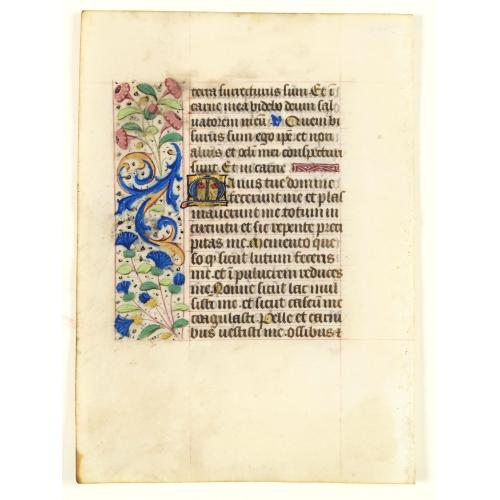 terra surrecturus sum. Et i
carne mea videbo deum sal
uatorem meu Quem vi
surus sum ego ipe et non
alius et oculi mei conspecturi
sunt. Et in carne
Manus tue domine
fecerunt me et plas
mauerunt me totum in
circuitu et sic repente preci
pitas me. Memento queso
q sicut lutum feceris
me et i puluerem reduces
me. Nonne sicut lac mul
sisti me. et sicut caseum me
coagulasti Pelle et carni
bus uestisti me. ossibus &